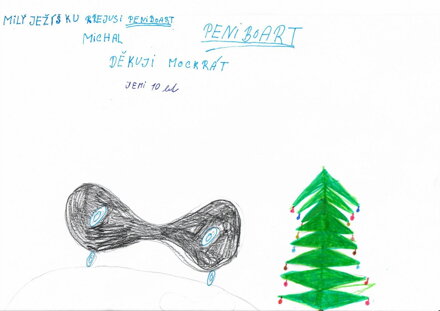 MILÝ JEŽÍŠKU PŘEJUSI PENIBOART
PENIBOART
MICHAL
DĚKUJI MOCKRÁT
JEMI 10 let